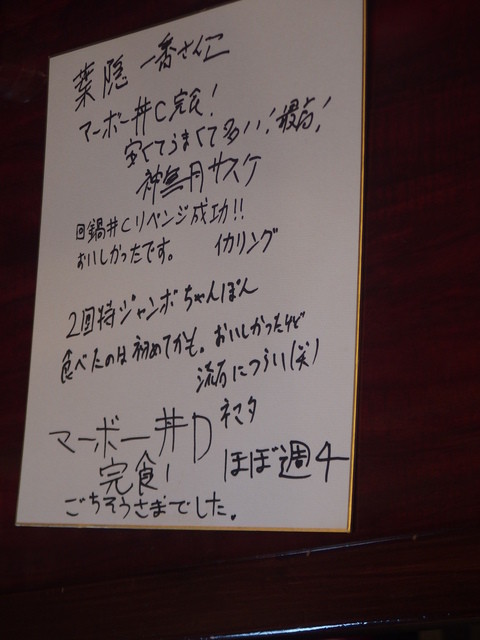 葉隠 一番さん江
マーボー丼C完食!
安くてうまくて多い!最高!
神無月サスケ
回鍋丼Cリベンジ成功!!
おいしかったです。 イカリング
2回特ジャンボちゃんぽん
食べたのは初めてかも。おいしかったけど
流石につらい(笑)
ネマタ
マーボー丼D
完食!
ほぼ週4
ごちそうさまでした。